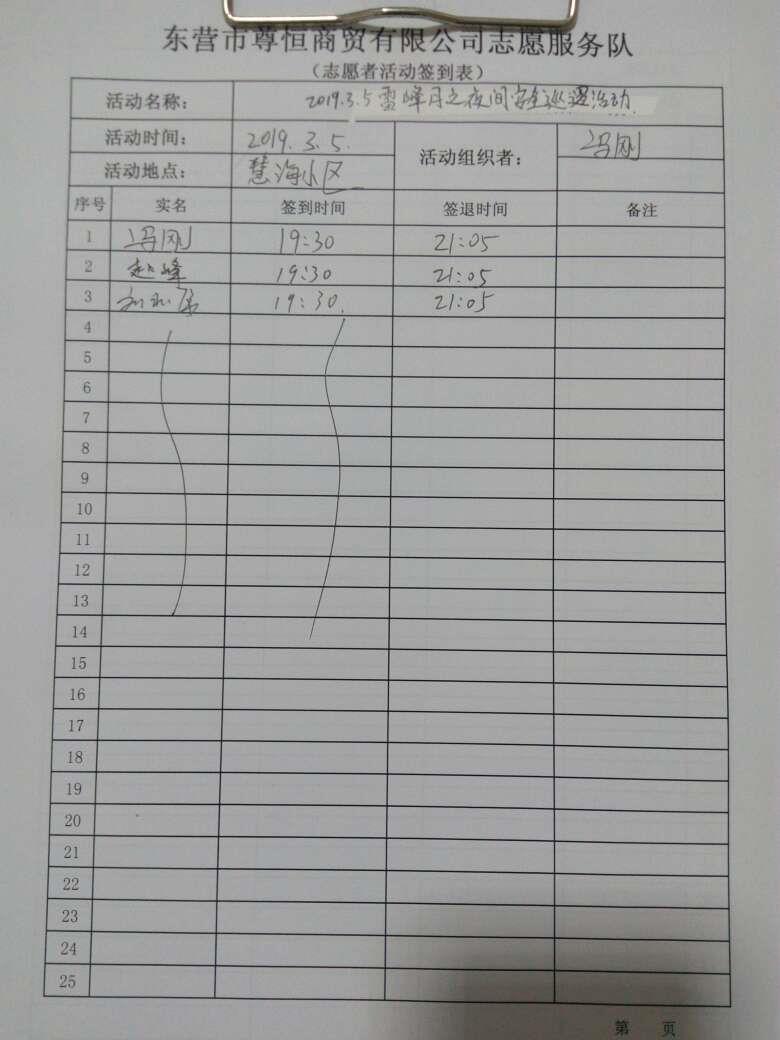 东营市尊恒商贸有限公司志愿服务队
（志愿者活动签到表）
活动名称： 2019.3.5雷峰月之夜间安全巡逻活动
活动时间： 2019.3.5. 活动组织者： 冯刚
活动地点： 慧海小区
序号 实名 签到时间 签退时间 备注
1 冯刚 19:30 21:05
2 赵峰 19:30 21:05
3 19:30. 21:05
4
5
6
7
8
9
10
11
12
13
14
15
16
17
18
19
20
21
22
23
24
25
第 页